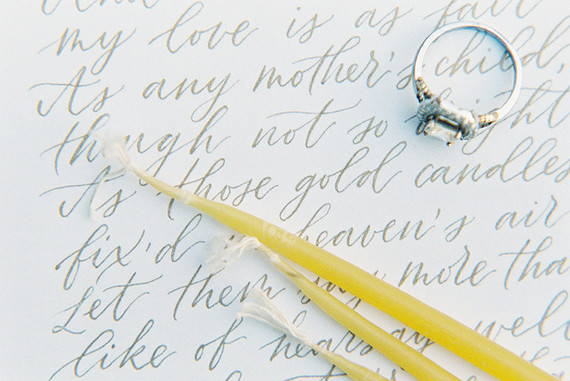 my love is as fair
As any mother's child,
though not so bright
As those gold candles
fix'd heaven's air
Let them say more tha
like of hearsay well